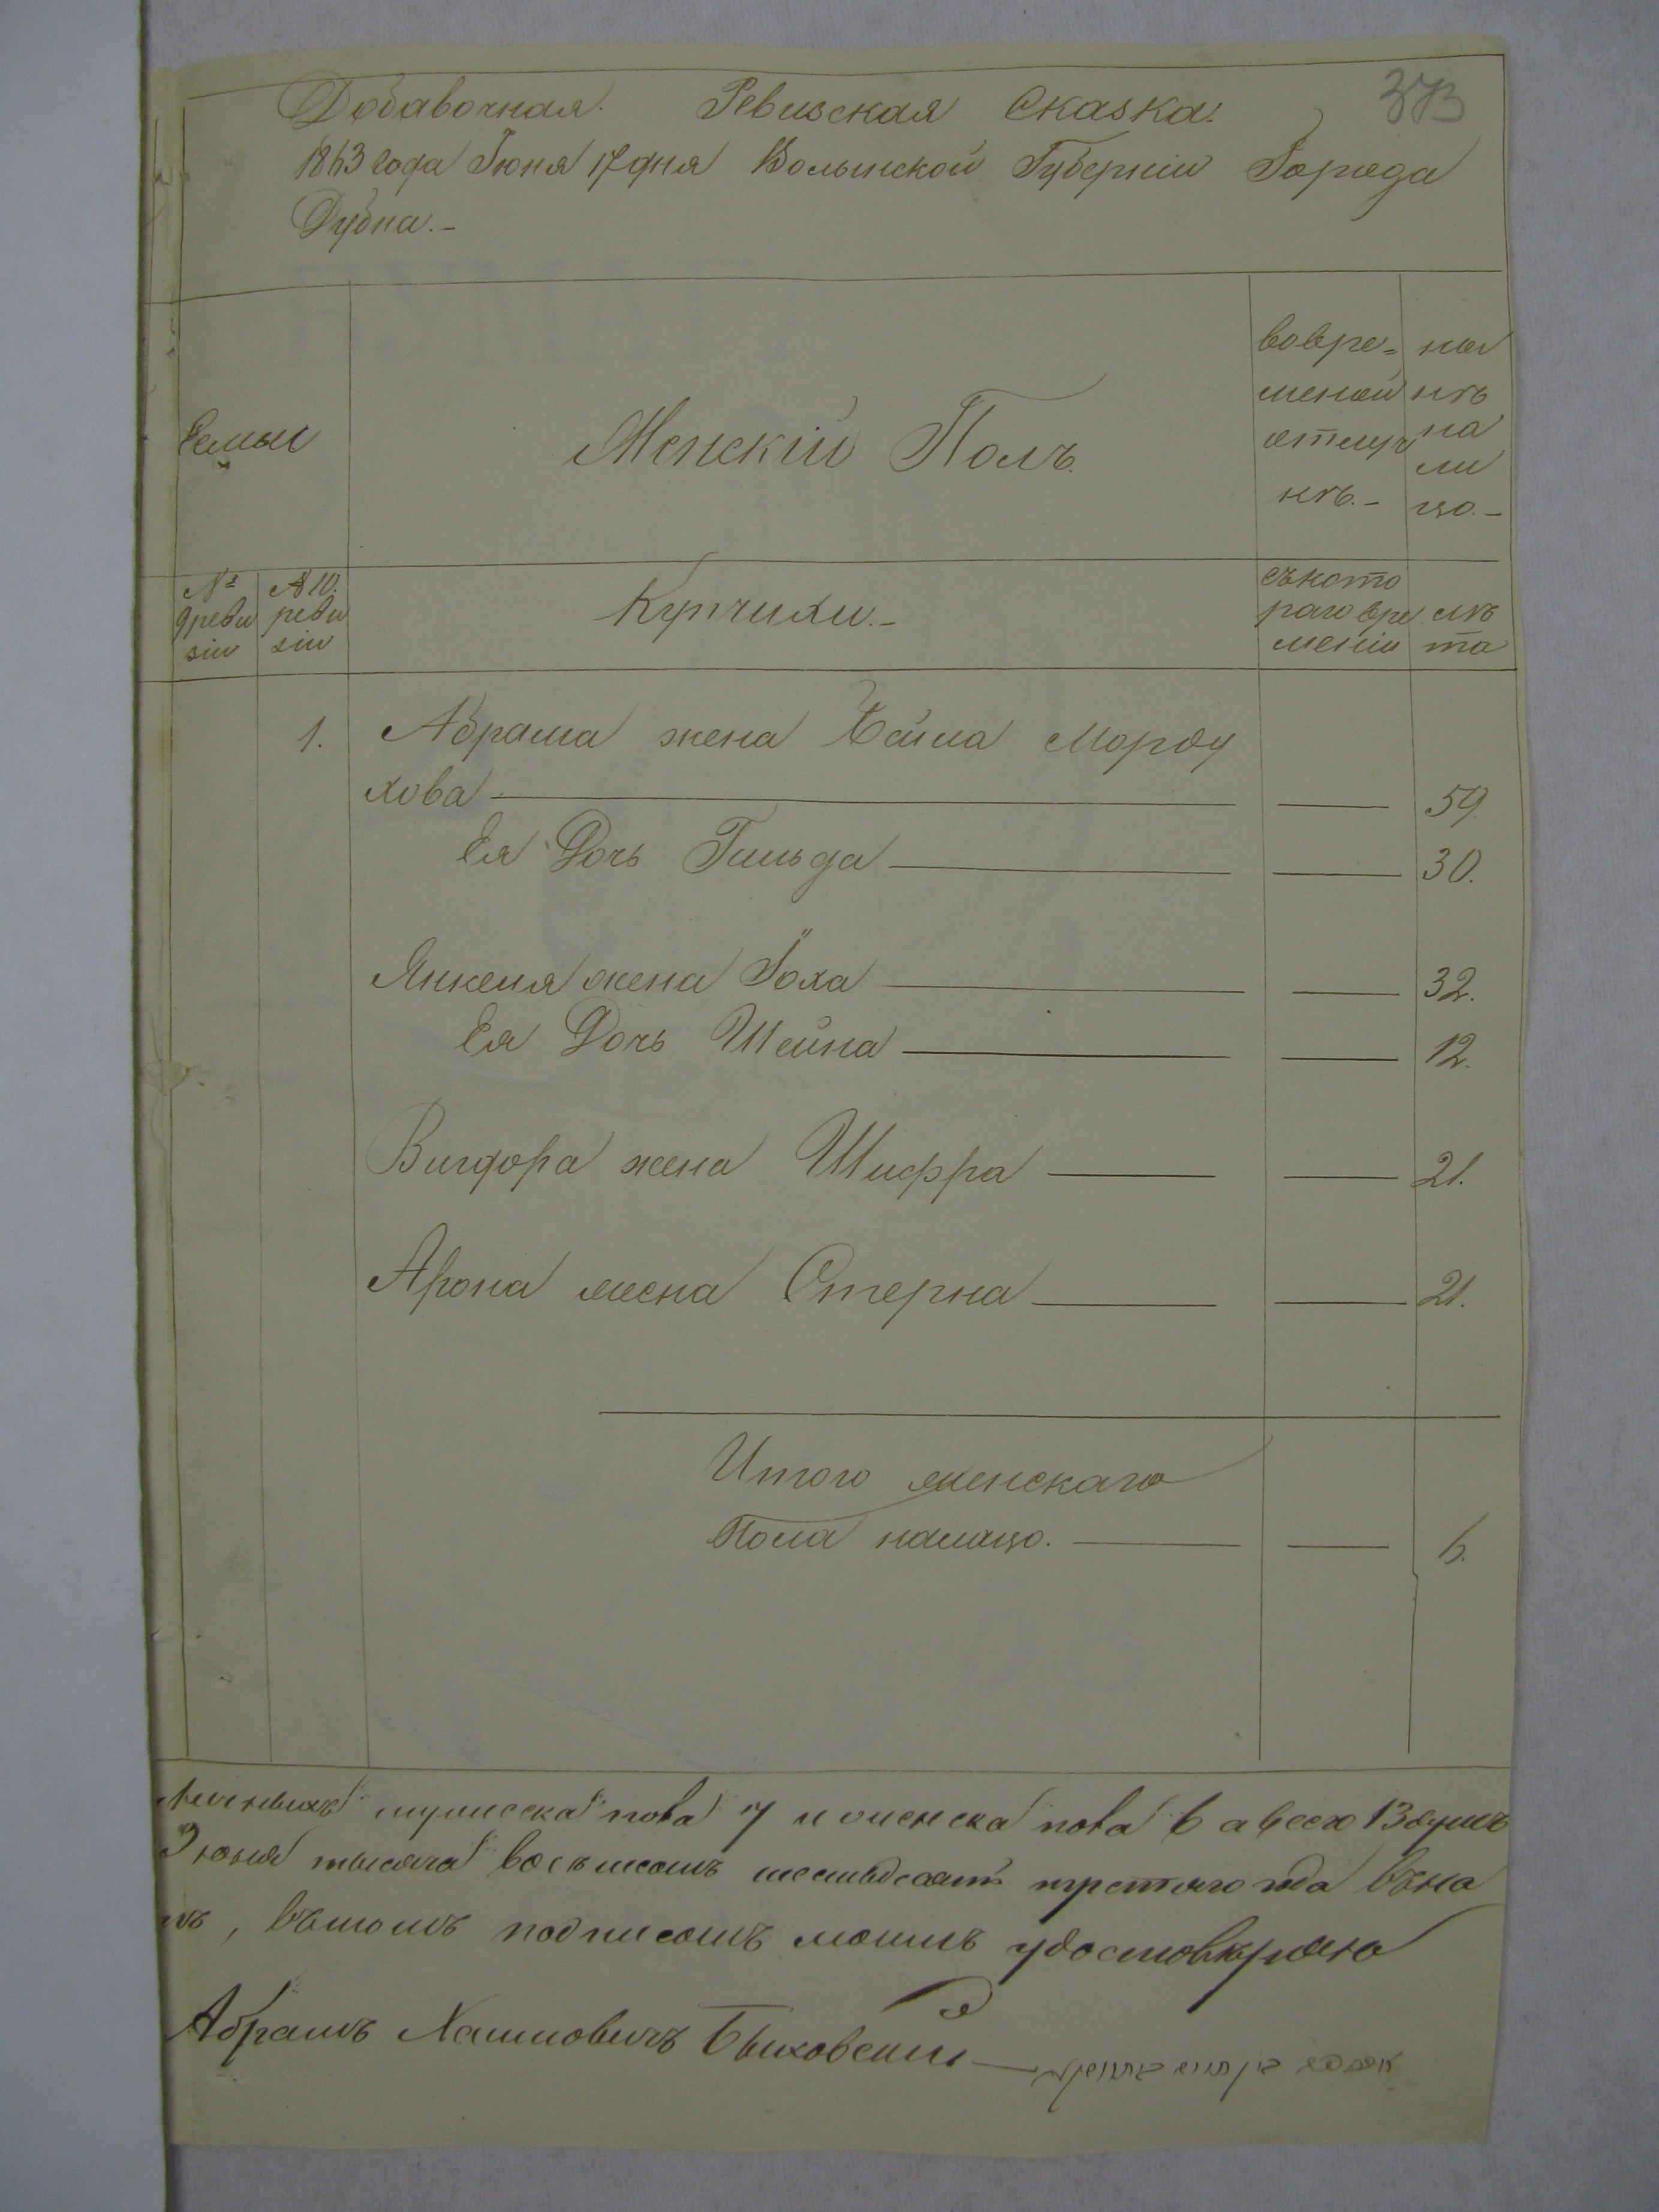 373
Добавочная. Ревизская Сказка.
1863 года Іюня 17 дня Волынской Губерніи Города
Дубна.-
Семьи
Женскій Полъ.
вовре=
меной
отлуч
кѣ.-
на
на
ли
цо.-
№
9 реви
зіи
№ 10.
реви
зіи
Купчихи.-
съкото
раго вре
мени
лѣ
та
1. Абрама жена Бейла Морду
хова 59.
Ея Дочь Гильда 30.
Янкеля жена Іоха 32.
Ея Дочь Шейна 12.
Вигдора жена Шифра 21.
Арона жена Стерна 21.
Итого женскаго
Пола налицо. 6.
мужеска пола 7 и женска пола 6 а всего 13 душъ
Июня тысяча восемсотъ шестьдесятъ третяго года
, вътомъ подписомъ моимъ удостовѣряю
Абрамъ Хаимовичъ Быховский